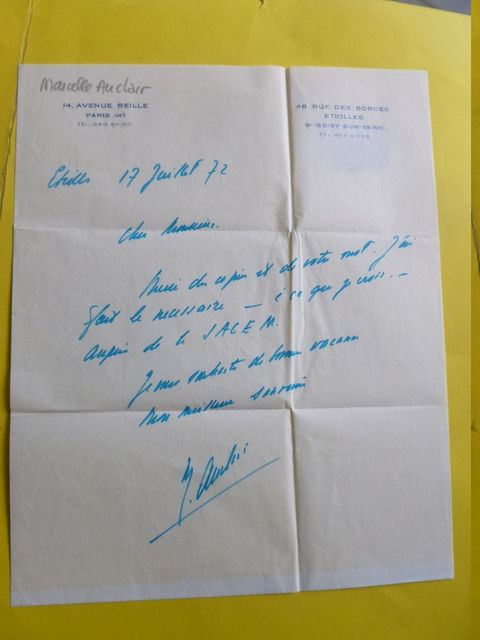 Marcelle Auclair
14, AVENUE REILLE
PARIS 14e
48 RUE DES BORDES
ETIOLLES
91-SOISY-SUR-SEINE
Etiolles 17 Juillet 72
Cher Monsieur.
Merci du copie et de votre mot. J'ai
fait le nécessaire — à ce que je crois. —
auprès de la SACEM.
Je vous souhaite de bonnes vacances
Mon meilleur souvenir
M. Auclair